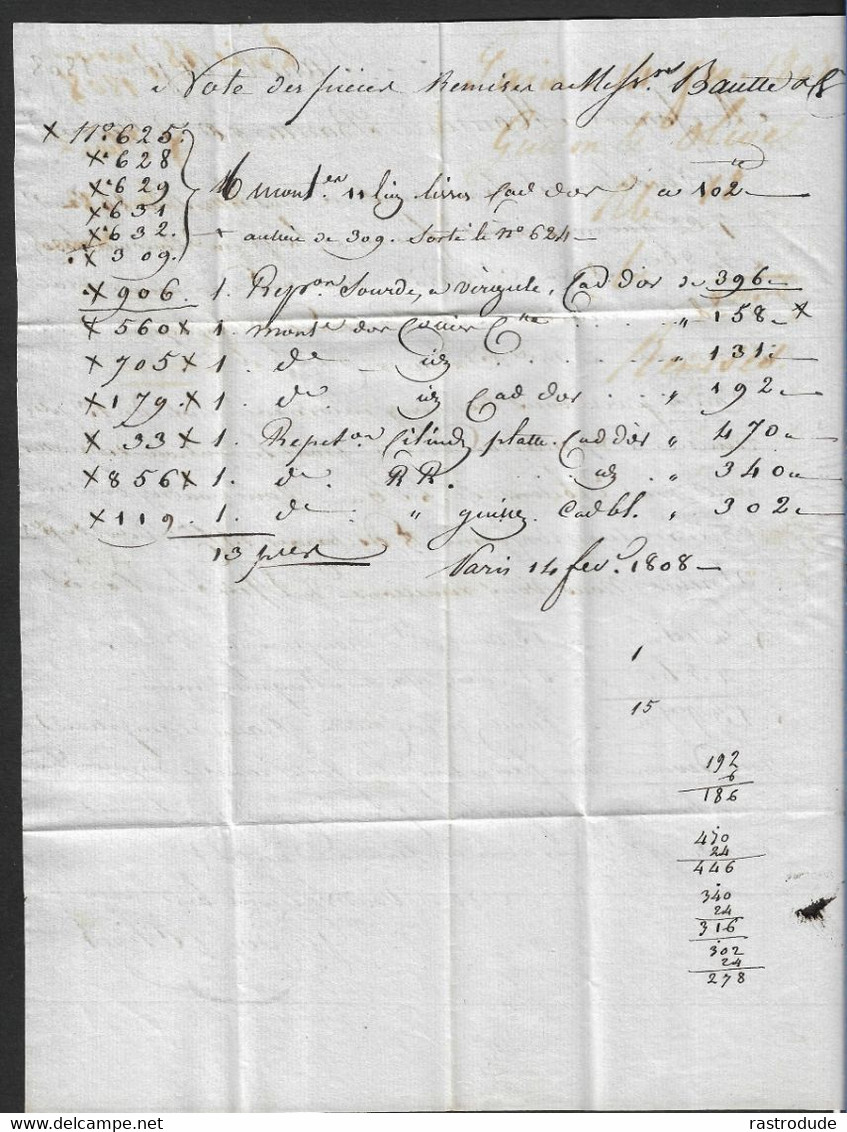 Note des pièces Remises a Mess.rs Bautte & C
x N.o 625.
x " 628
x " 629
x " 631
x " 632.
x 309.
6 mont.en 11 lig lisses Cad d'or a 102
au lieu de 309. Sorti le N.o 624
x 906. 1. Rep.on Sourde, a virgule, Cad d'or de 396
x 560 x 1. mont.e d'or " 158 x
x 705 x 1. d.e id " 131
x 179. x 1. d.e id Cad d'or " 192
x 33 x 1. Repet.on Cilind. platte. Cad d'or " 470
x 856 x 1. d.e RR. id " 340
x 119. 1. d.e " guillez. Cad bl. " 302
13 pces
Paris 14 fev.r 1808
1
15
192
6
186
470
24
446
340
24
316
302
24
278
rastrodude